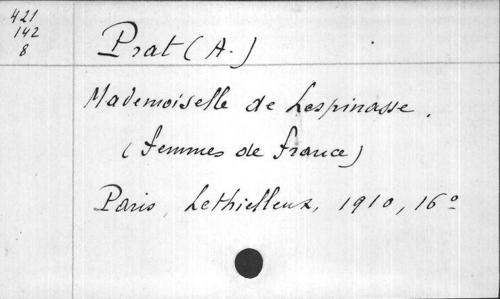 421
142
8
Prat (A.)
Mademoiselle de Lespinasse.
(Femmes de France)
Paris, Lethielleux, 1910, 16°